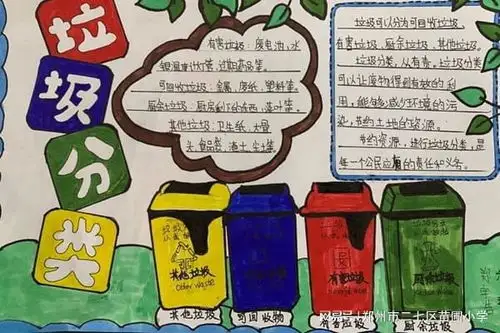 垃
圾
分
类
有害垃圾:废电池,水
银温度计,灯管,过期药品等。
可回收垃圾:金属、废纸、塑料等
厨余垃圾:厨房剩下的东西、菜叶等。
其他垃圾:卫生纸、大骨
头、食品袋、渣土、尘埃等
垃圾可以分为可回收垃圾,
有害垃圾、厨余垃圾、其他垃圾。
垃圾分类,从有责。垃圾分类
可以让废物得到有效的利
用,能够减少环境的污
染,节约土地的资源。
节约资源,进行垃圾分类,是
每一个公民应有的责任和义务。
其他垃圾
Other waste
有害垃圾
厨余垃圾
其他垃圾
可回收物
有害垃圾
厨余垃圾
搜狐号|郑州市二七区苗圃小学